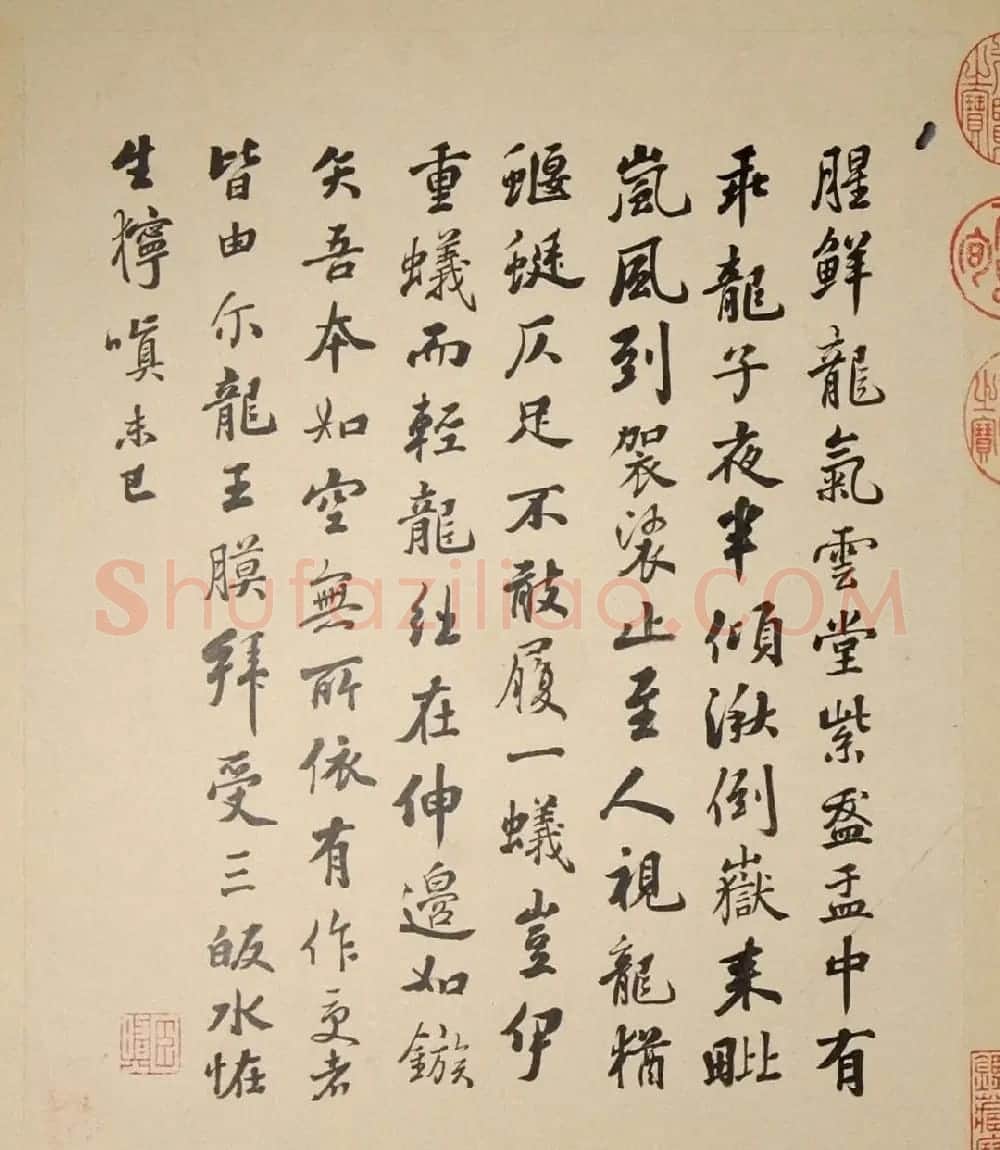 腥鮮龍氣雲堂紫盋盂中有
乖龍子夜半傾湫倒嶽来毗
嵐風到袈裟止至人視龍猶
蝘蜓仄足不敢履一蟻豈伊
重蟻而輕龍絀在伸邊如鏃
矢吾本如空無所依有作者
皆由尔龍王膜拜受三皈水恠
生獰嗔未已
Shufaziliao.COM
之寶
之寶